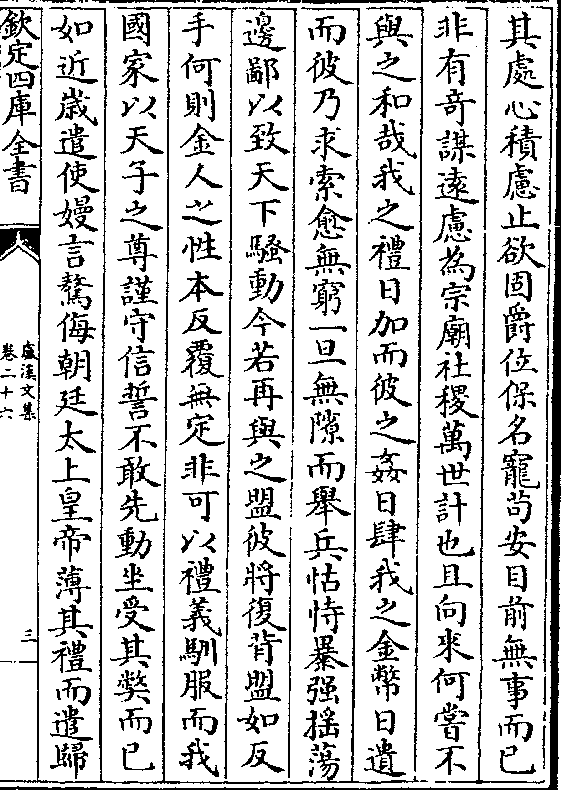 其處心積慮止欲固爵位保名寵苟安目前無事而已
非有竒謀遠慮為宗廟社稷萬世計也且向來何嘗不
與之和哉我之禮日加而彼之姦日肆我之金幣日遺
而彼乃求索愈無窮一旦無隙而舉兵怙恃暴强揺蕩
邊鄙以致天下騷動今若再與之盟彼將復背盟如反
手何則金人之性本反覆無定非可以禮義馴服而我
國家以天子之尊謹守信誓不敢先動坐受其獘而已
如近嵗遣使嫚言驁侮朝廷太上皇帝薄其禮而遣歸
欽定四庫全書
盧溪文集
卷二十六
三